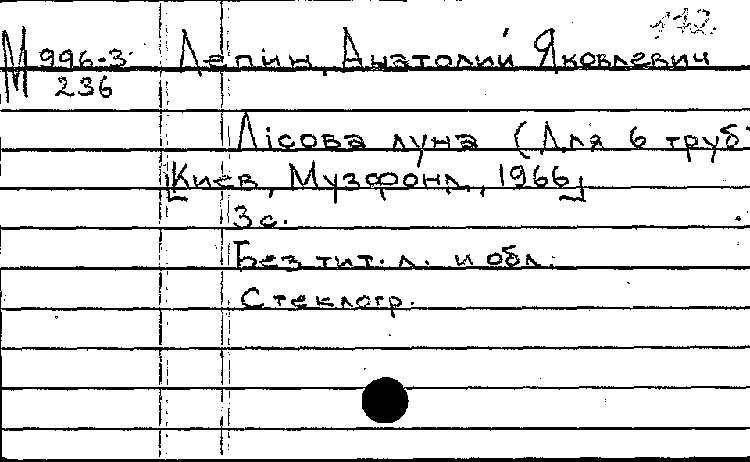 112.
М 996-3 Лепін, Анатолий Яковлевич
236
Лісова луна (Для 6 труб
[Киев, Музфонд, 1966]
3 с.
Без тит. л. и обл.
Стеклогр.